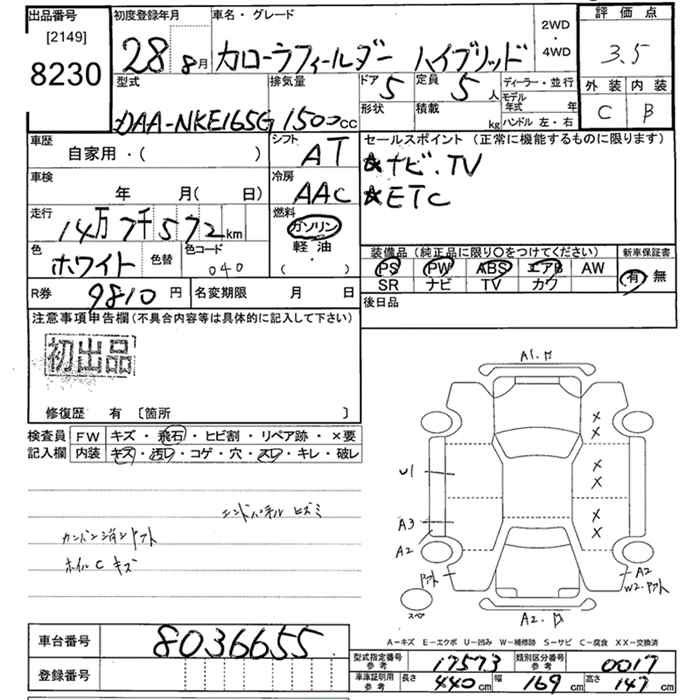 出品番号
[2149]
8230
初度登録年月
28年 8月
車名・グレード
カローラフィールダー ハイブリッド
2WD
・
4WD
評価点
3.5
外装 内装
C B
型式
DAA-NKE165G
排気量
1500cc
ドア
5
定員
5人
形状
積載
kg
ディーラー・並行
モデル年式 年
ハンドル 左・右
車歴
自家用・( )
シフト
AT
セールスポイント(正常に機能するものに限ります)
★ナビ.TV
★ETC
車検
年 月( 日)
冷房
AAC
走行
14万7千572km
燃料
ガソリン
軽油
( )
色
ホワイト
色替
色コード
040
装備品(純正品に限り○をつけてください)
PS PW ABS エアB AW
SR ナビ TV カワ
新車保証書
有 無
R券
9810円
名変期限 月 日
後日品
注意事項申告欄(不具合内容等は具体的に記入して下さい)
初出品
修復歴 有 〔箇所 〕
検査員記入欄
FW キズ・飛石・ヒビ割・リペア跡・×要
内装 キズ・汚レ・コゲ・穴・スレ・キレ・破レ
エンドパネル ヒズミ
カンバン消シ アト
ホイルC キズ
A1.
× ×
U1
× ×
A3
× ×
A2
A2
W2.
スペア
A2.
A−キズ E−エクボ U−凹み W−補修跡 S−サビ C−腐食 XX−交換済
車台番号
8036655
登録番号
型式指定番号参考
17573
類別区分番号参考
0017
車庫証明用参考
長さ 440cm 幅 169cm 高さ 147cm